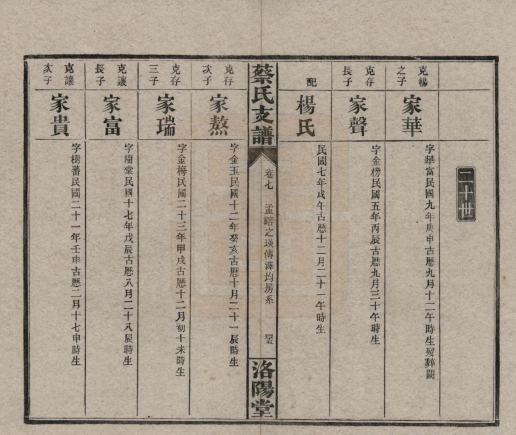 二十世
克暢
之子
家華
字舜富民國九年庚申古厯九月十二午時生
克存
長子
家聲
字金榜民國五年丙辰古厯九月三十午時生
配
楊氏
民國七年戊午古厯十二月二十一午時生
蔡氏支譜
卷七
洛陽堂
克存
次子
家熬
字金玉民國十二年癸亥古厯十月二十一辰時生
克存
三子
家瑞
字金梅民國二十三年甲戌古厯十二月初十未時生
克讓
長子
家富
字樹棠民國十七年戊辰古厯八月二十八辰時生
克讓
次子
家貴
字樹蕃民國二十一年壬申古厯二月十七申時生